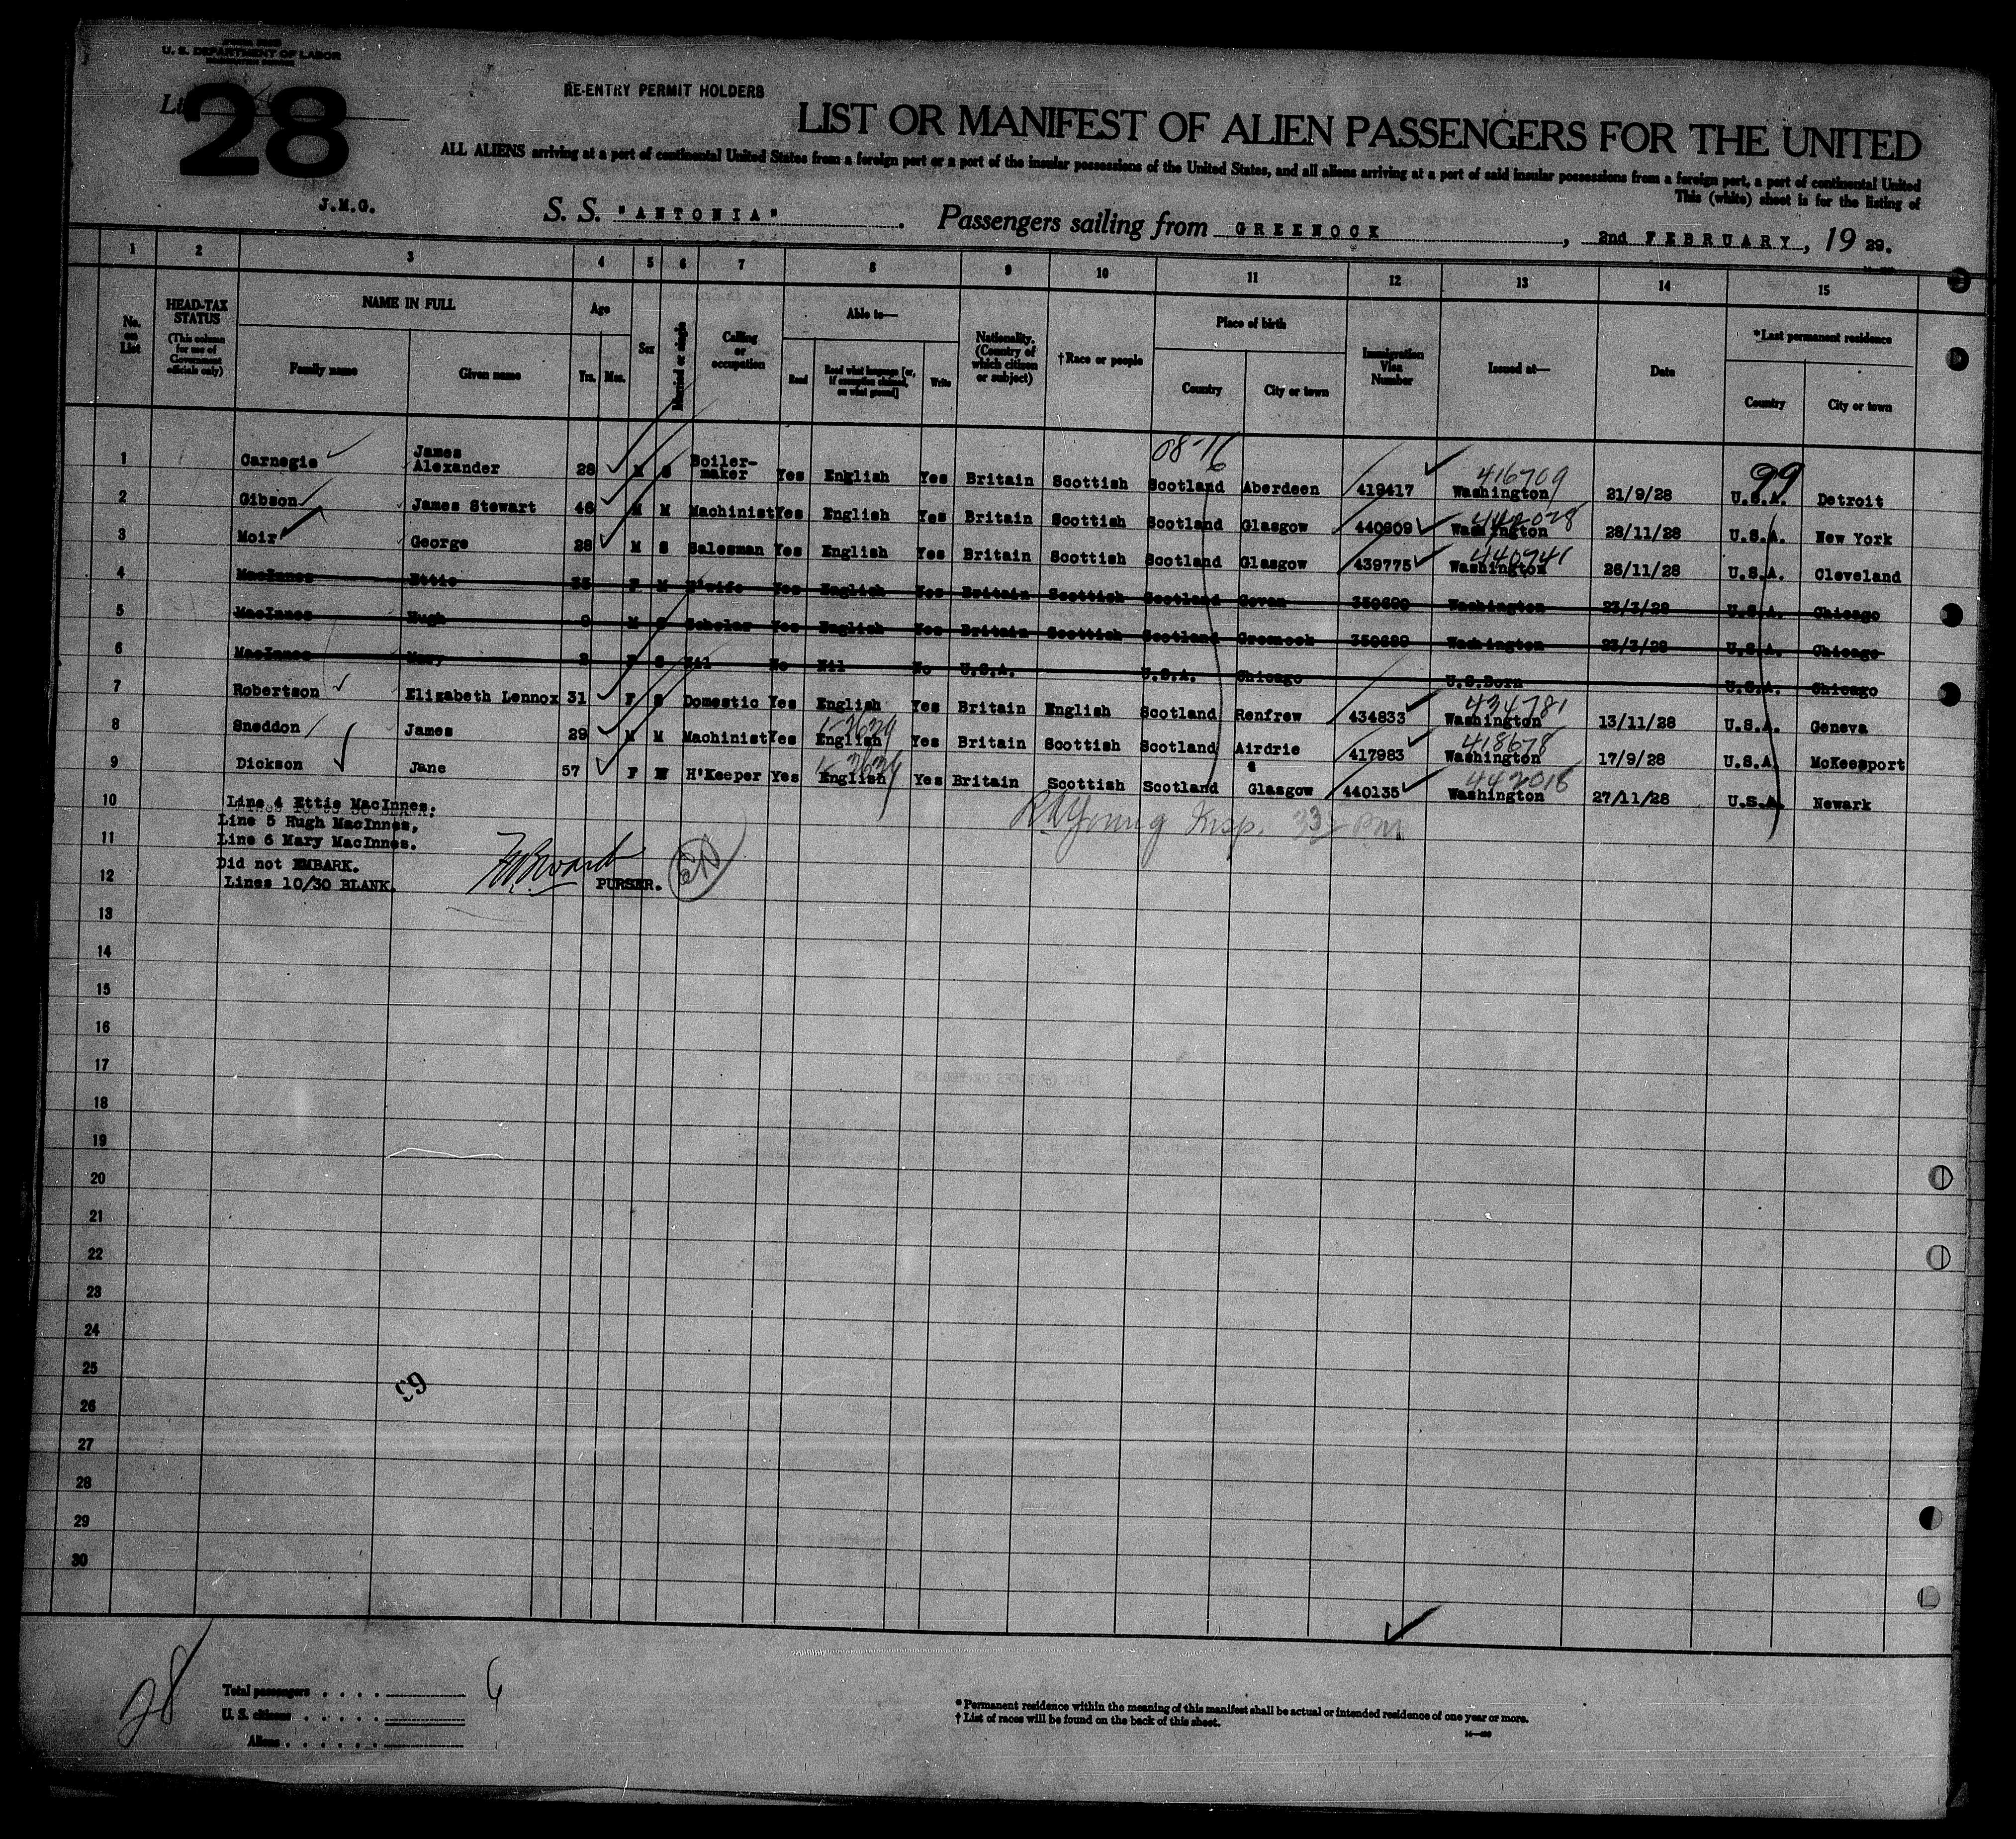 U. S. DEPARTMENT OF LABOR
28
RE-ENTRY PERMIT HOLDERS
LIST OR MANIFEST OF ALIEN PASSENGERS FOR THE UNITED
ALL ALIENS arriving at a port of continental United States from a foreign port or a port of the insular possessions of the United States, and all aliens arriving at a port of said insular possessions from a foreign port, a port of continental United
This (white) sheet is for the listing of
J.M.G.
S. S. "ANTONIA". Passengers sailing from GREENOCK, 2nd FEBRUARY, 19 29.
1 2 3 4 5 6 7 8 9 10 11 12 13 14 15
No. on List
HEAD-TAX STATUS
(This column for use of Government officials only)
NAME IN FULL
Family name Given name
Age
Yrs. Mos.
Sex
Married or single
Calling or occupation
Able to—
Read Read what language [or, if exemption claimed, on what ground] Write
Nationality. (Country of which citizen or subject)
†Race or people
Place of birth
Country City or town
Immigration Visa Number
Issued at—
Date
*Last permanent residence
Country City or town
08-16
416709
99
1 Carnegie James Alexander 28 M S Boiler-maker Yes English Yes Britain Scottish Scotland Aberdeen 419417 Washington 21/9/28 U.S.A. Detroit
2 Gibson James Stewart 46 M M Machinist Yes English Yes Britain Scottish Scotland Glasgow 440809 Washington 28/11/28 U.S.A. New York
3 Moir George 28 M S Salesman Yes English Yes Britain Scottish Scotland Glasgow 439775 Washington 440941 26/11/28 U.S.A. Cleveland
4 MacInnes Ettie 35 F M H'wife Yes English Yes Britain Scottish Scotland Govan 350699 Washington 23/3/28 U.S.A. Chicago
5 MacInnes Hugh 9 M S Scholar Yes English Yes Britain Scottish Scotland Greenock 350699 Washington 23/3/28 U.S.A. Chicago
6 MacInnes Mary 2 F S Nil No Nil No U.S.A. U.S.A. Chicago U.S.Born U.S.A. Chicago
7 Robertson Elizabeth Lennox 31 F S Domestic Yes English Yes Britain English Scotland Renfrew 434833 Washington 434781 13/11/28 U.S.A. Geneva
8 Sneddon James 29 M M Machinist Yes English Yes Britain Scottish Scotland Airdrie 417983 Washington 418678 17/9/28 U.S.A. McKeesport
9 Dickson Jane 57 F W H'Keeper Yes English Yes Britain Scottish Scotland Glasgow 440135 Washington 442018 27/11/28 U.S.A. Newark
10 Line 4 Ettie MacInnes.
Line 5 Hugh MacInnes,
11 Line 6 Mary MacInnes.
Did not EMBARK.
12 Lines 10/30 BLANK.
PURSER.
Young Insp.
13
14
15
16
17
18
19
20
21
22
23
24
25
26
27
28
29
30
28
Total passengers 6
U. S. citizens
Aliens
* Permanent residence within the meaning of this manifest shall be actual or intended residence of one year or more.
† List of races will be found on the back of this sheet.